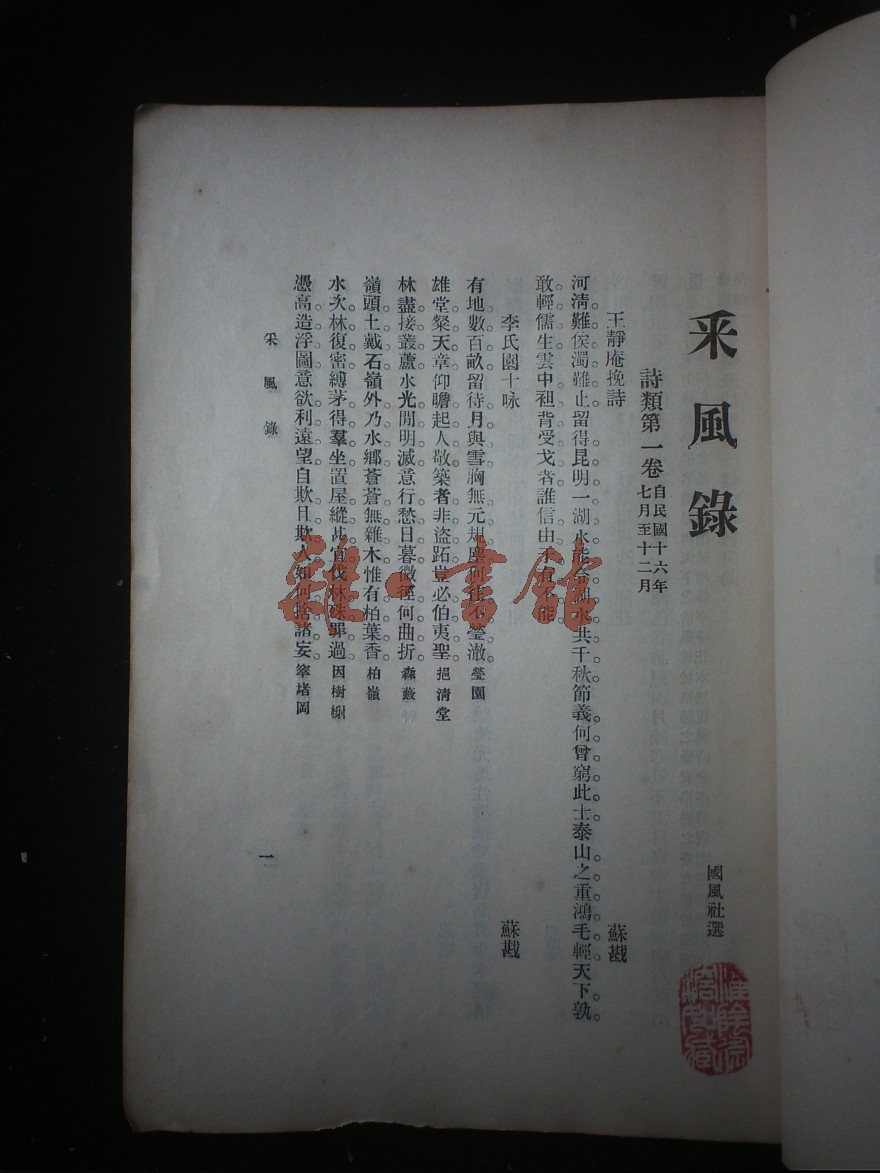 采風錄
國風社選
詩類第一卷 自民國十六年七月至十二月
王靜庵挽詩 蘇戡
河清難俟濁難止。留得昆明一湖水。 湖水共千秋。節義何曾窮此士。泰山之重鴻毛輕。天下孰
敢輕儒生。雲中袒背受戈者。誰信由 不能。
李氏園十咏 蘇戡
有地數百畝。留待月與雪。胸無元規塵。何 瑩澈。瑩園
雄堂粲天章。仰瞻起人敬。築者非盜跖。豈必伯夷聖。挹清堂
林盡接叢蘆。水光閒明滅。意行愁日暮。微徑何曲折。森蔽
嶺頭土戴石。嶺外乃水鄉。蒼蒼無雜木。惟有柏葉香。柏嶺
水次林復密。縛茅得羣坐。置屋縱 宜。伐林殊罪過。因樹榭
憑高造浮圖。意欲利遠望。自欺 欺人。如何捨諸妄。窣堵岡
采風錄
一
雜·書館